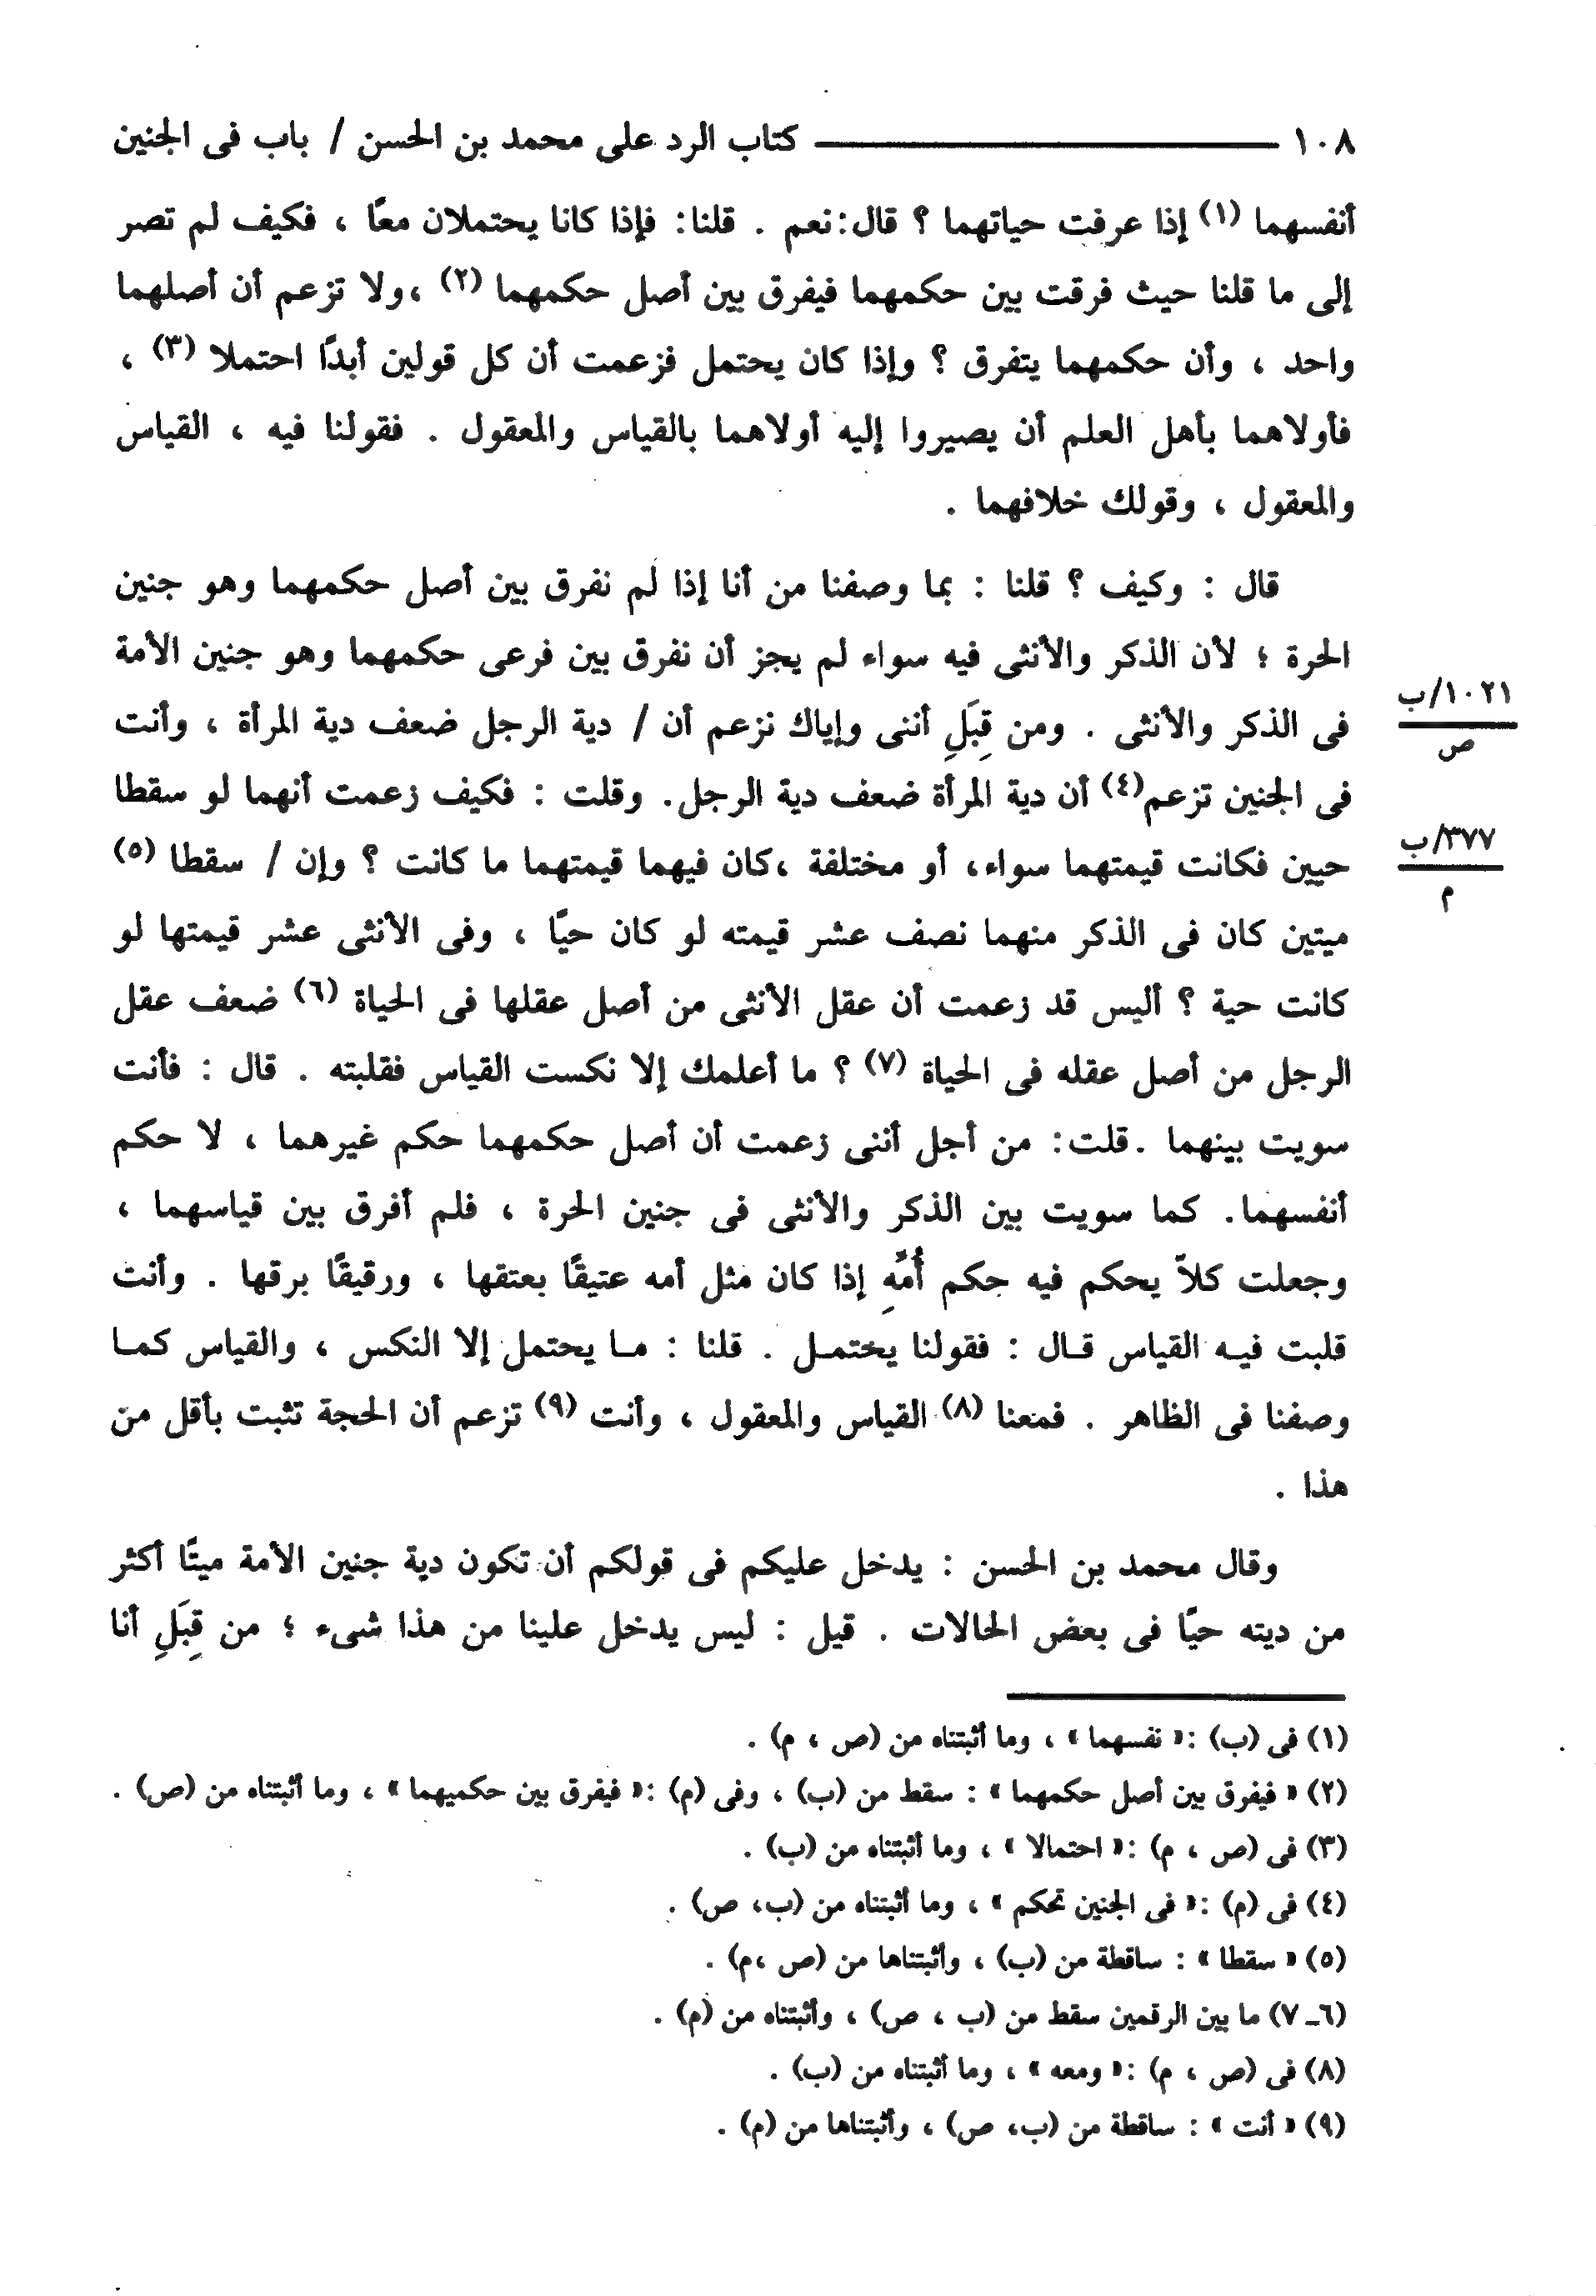 ١٠٨ ــــــــــــــــــــ كتاب الرد على محمد بن الحسن / باب فى الجنين
أنفسهما (١) إذا عرفت حياتهما ؟ قال : نعم . قلنا : فإذا كانا يحتملان معًا ، فكيف لم تصر
إلى ما قلنا حيث فرقت بين حكمهما فيفرق بين أصل حكمهما (٢) ،ولا تزعم أن أصلهما
واحد ، وأن حكمهما يتفرق ؟ وإذا كان يحتمل فزعمت أن كل قولين أبدًا احتملا (٣) ،
فأولاهما بأهل العلم أن يصيروا إليه أولاهما بالقياس والمعقول . فقولنا فيه ، القياس
والمعقول ، وقولك خلافهما .
قال : وكيف ؟ قلنا : بما وصفنا من أنا إذا لم نفرق بين أصل حكمهما وهو جنين
الحرة ؛ لأن الذكر والأنثى فيه سواء لم يجز أن نفرق بين فرعى حكمهما وهو جنين الأمة
فى الذكر والأنثى . ومن قِبَلِ أننى وإياك نزعم أن / دية الرجل ضعف دية المرأة ، وأنت
١٠٢١/ب
ص
فى الجنين تزعم(٤) أن دية المرأة ضعف دية الرجل. وقلت : فكيف زعمت أنهما لو سقطا
حيين فكانت قيمتهما سواء، أو مختلفة ،كان فيهما قيمتهما ما كانت ؟ وإن / سقطا (٥)
٣٧٧/ب
م
ميتين كان فى الذكر منهما نصف عشر قيمته لو كان حيًا ، وفى الأنثى عشر قيمتها لو
كانت حية ؟ أليس قد زعمت أن عقل الأنثى من أصل عقلها فى الحياة (٦) ضعف عقل
الرجل من أصل عقله فى الحياة (٧) ؟ ما أعلمك إلا نكست القياس فقلبته . قال : فأنت
سويت بينهما .قلت: من أجل أننى زعمت أن أصل حكمهما حكم غيرهما ، لا حكم
أنفسهما. كما سويت بين الذكر والأنثى فى جنين الحرة ، فلم أفرق بين قياسهما ،
وجعلت كلاّ يحكم فيه حكم أُمِّهِ إذا كان مثل أمه عتيقًا بعتقها ، ورقيقًا برقها . وأنت
قلبت فيـه القياس قـال : فقولنا يحتمـل . قلنا : مـا يحتمل إلا النكس ، والقياس كمـا
وصفنا فى الظاهر . فمعنا (٨) القياس والمعقول ، وأنت (٩) تزعم أن الحجة تثبت بأقل من
هذا .
وقال محمد بن الحسن : يدخل عليكم فى قولكم أن تكون دية جنين الأمة ميتًا أكثر
من ديته حيًا فى بعض الحالات . قيل : ليس يدخل علينا من هذا شىء ؛ من قِبَلِ أنا
(١) فى (ب) :« نفسهما » ، وما أثبتناه من (ص ، م) .
(٢) « فيفرق بين أصل حكمهما » : سقط من (ب) ، وفى (م) :« فيفرق بين حكميهما » ، وما أثبتناه من (ص) .
(٣) فى (ص ، م) :« احتمالا » ، وما أثبتناه من (ب) .
(٤) فى (م) :« فى الجنين تحكم » ، وما أثبتناه من (ب، ص) .
(٥) « سقطا » : ساقطة من (ب) ، وأثبتناها من (ص ،م) .
(٦ـ ٧) ما بين الرقمين سقط من (ب ، ص) ، وأثبتناه من (م) .
(٨) فى (ص ، م) :« ومعه » ، وما أثبتناه من (ب) .
(٩) « أنت » : ساقطة من (ب، ص) ، وأثبتناها من (م) .